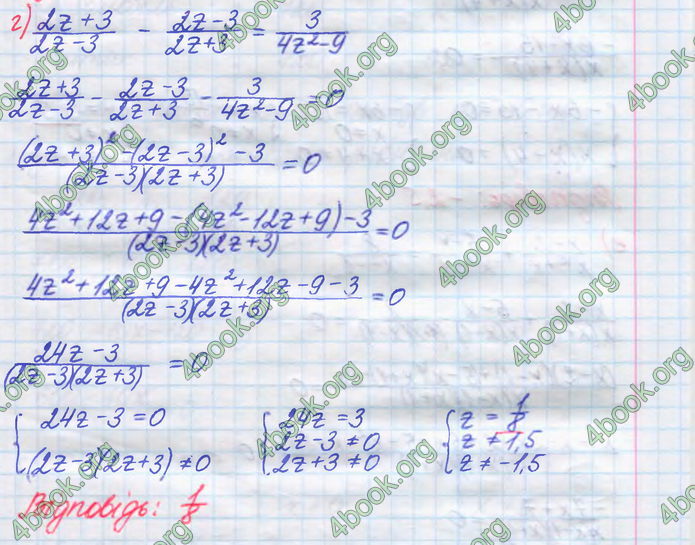 г) (2z+3)/(2z-3) - (2z-3)/(2z+3) = 3/(4z²-9)
(2z+3)/(2z-3) - (2z-3)/(2z+3) - 3/(4z²-9) = 0
((2z+3)² - (2z-3)² - 3)/((2z-3)(2z+3)) = 0
(4z²+12z+9-(4z²-12z+9)-3)/((2z-3)(2z+3)) = 0
(4z²+12z+9-4z²+12z-9-3)/((2z-3)(2z+3)) = 0
(24z-3)/((2z-3)(2z+3)) = 0
{ 24z-3=0 { 24z=3 { z=1/8
(2z-3)(2z+3)≠0 2z-3≠0 z≠1,5
2z+3≠0 z≠-1,5
Відповідь: 1/8
4book.org